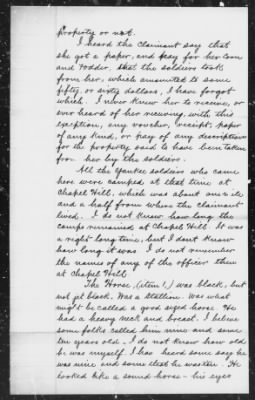 property or not.
I heard the claimant say that
she got a paper, and pay for her corn
and Fodder that the soldiers took
from her, which amounted to some
fifty, or sixty dollars, I have forgot
which. I never knew her to receive, or
ever heard of her receiving, with this
exception, any voucher, receipt, paper
of any kind, or pay of any description
for the property said to have been taken
from her by the soldiers.
All the Yankee soldiers who came
here were camped at that time at
Chapel Hill, which was about one mile
and a half from where the claimant
lived. I do not know how long the
camps remained at Chapel Hill. It was
a right long time, but I don't know
how long it was. I do not remember
the names of any of the officers there
at Chapel Hill.
The Horse, (item 1,) was black, but
not jet black. Was a stallion. Was what
might be called a good sized horse. He
had a heavy neck and breast. I believe
some folks called him nine and some
ten years old. I do not know how old
he was myself. I have heard some say he
was nine and some that he wasten. He
looked like a sound horse - his eyes